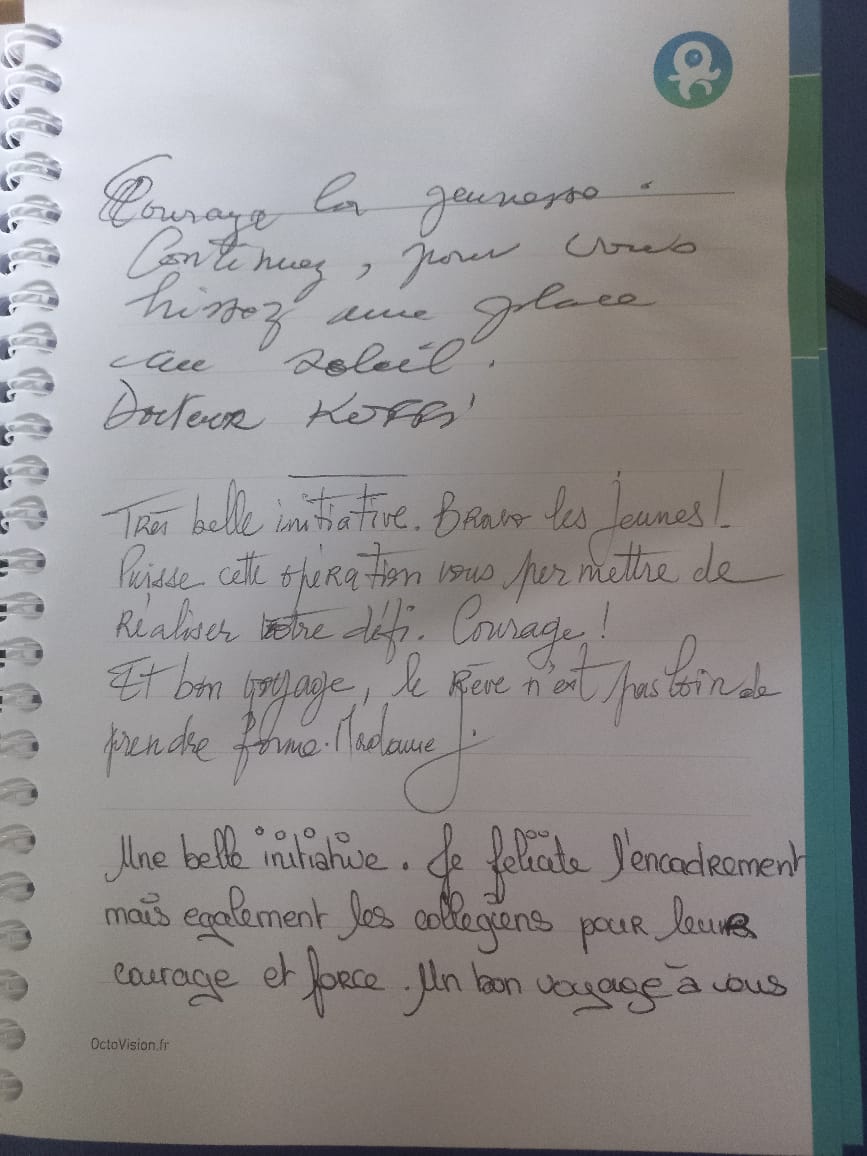 Courage la jeunesse.
Continuez, pour vous
hissez une place
au soleil.
Docteur KOFFI
Très belle initiative. Bravo les jeunes!
Puisse cette opération vous permettre de
Réaliser votre défi. Courage!
Et bon voyage, le Rêve n'est pas loin de
prendre forme. Madame J.
Une belle initiative. Je feliate l'encadrement
mais egalement les collegiens pour leurs
courage et force. Un bon voyage à vous
OctoVision.fr